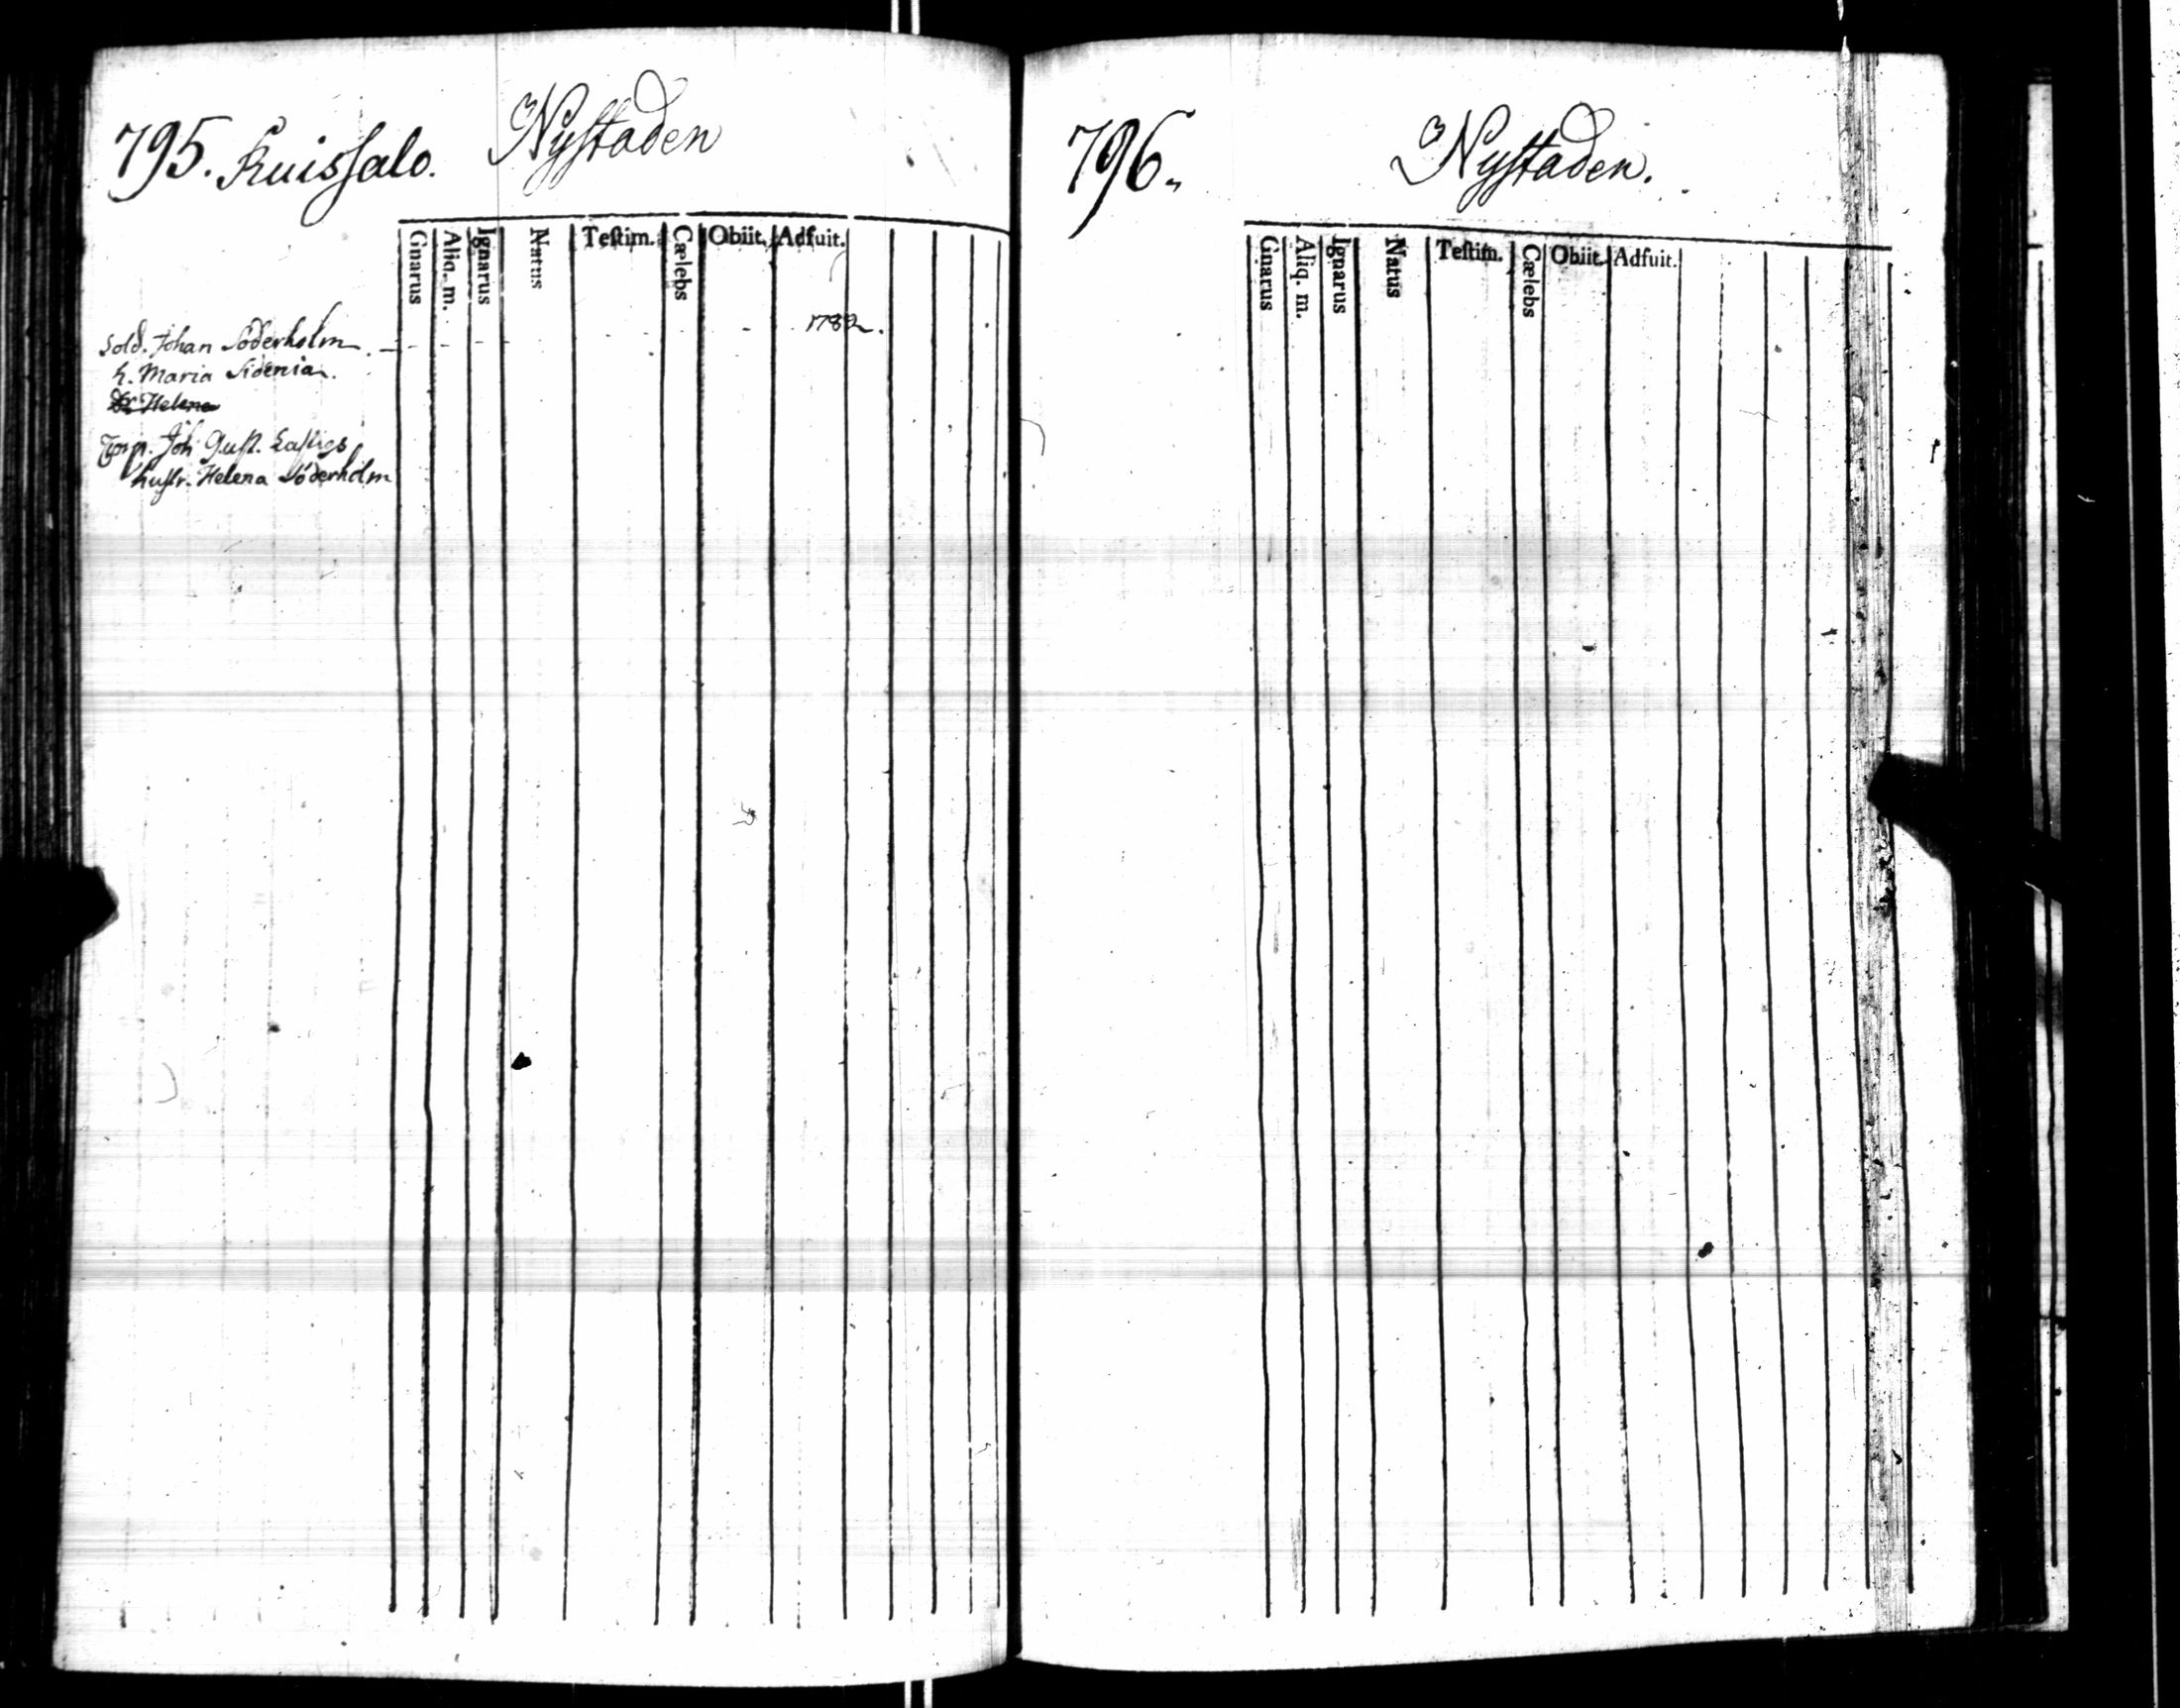 795. Kuissalo. Nystaden
Gnarus Aliq. m. Ignarus Natus Testim. Cælebs Obiit. Adfuit.
Sold. Johan Söderholm. - - - - - 1782.
h. Maria Sidenia.
Dr Helena
Joh Gust.
hustr. Helena Söderholm
796.
Nystaden.
Gnarus Aliq. m. Ignarus Natus Testim. Cælebs Obiit. Adfuit.